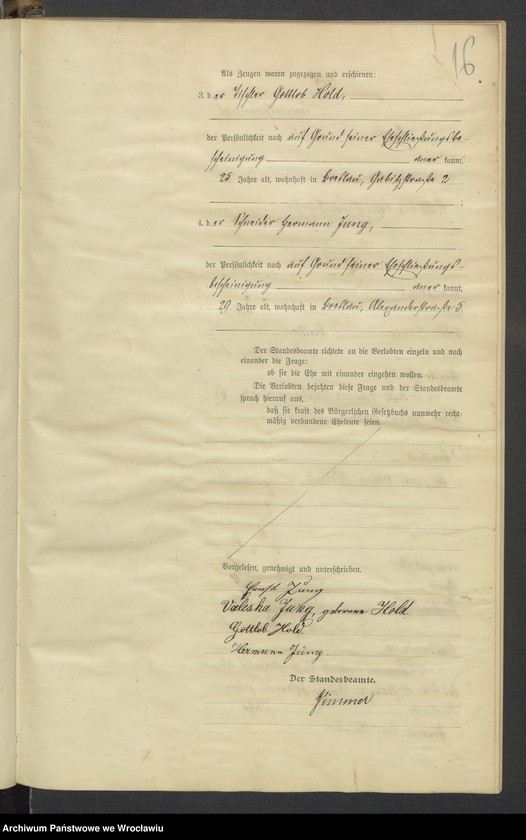 16.
Als Zeugen waren zugezogen und erschienen:
3. der Tischler Gottlob Hold,
der Persönlichkeit nach auf Grund seiner Eheschließungsbe-
scheinigung anerkannt,
25 Jahre alt, wohnhaft in Breslau, Gabitzstraße 2
;
4. der Schneider Hermann Jung,
der Persönlichkeit nach auf Grund seiner Eheschließungs-
bescheinigung anerkannt,
29 Jahre alt, wohnhaft in Breslau, Alexanderstraße 5.
Der Standesbeamte richtete an die Verlobten einzeln und nach
einander die Frage:
ob sie die Ehe mit einander eingehen wollen.
Die Verlobten bejahten diese Frage und der Standesbeamte
sprach hierauf aus,
daß sie kraft des Bürgerlichen Gesetzbuchs nunmehr recht-
mäßig verbundene Eheleute seien.
Vorgelesen, genehmigt und unterschrieben.
Ernst Jung
Valeska Jung, geborene Hold
Gottlob Hold.
Hermann Jung.
Der Standesbeamte.
Zimmer
Archiwum Państwowe we Wrocławiu